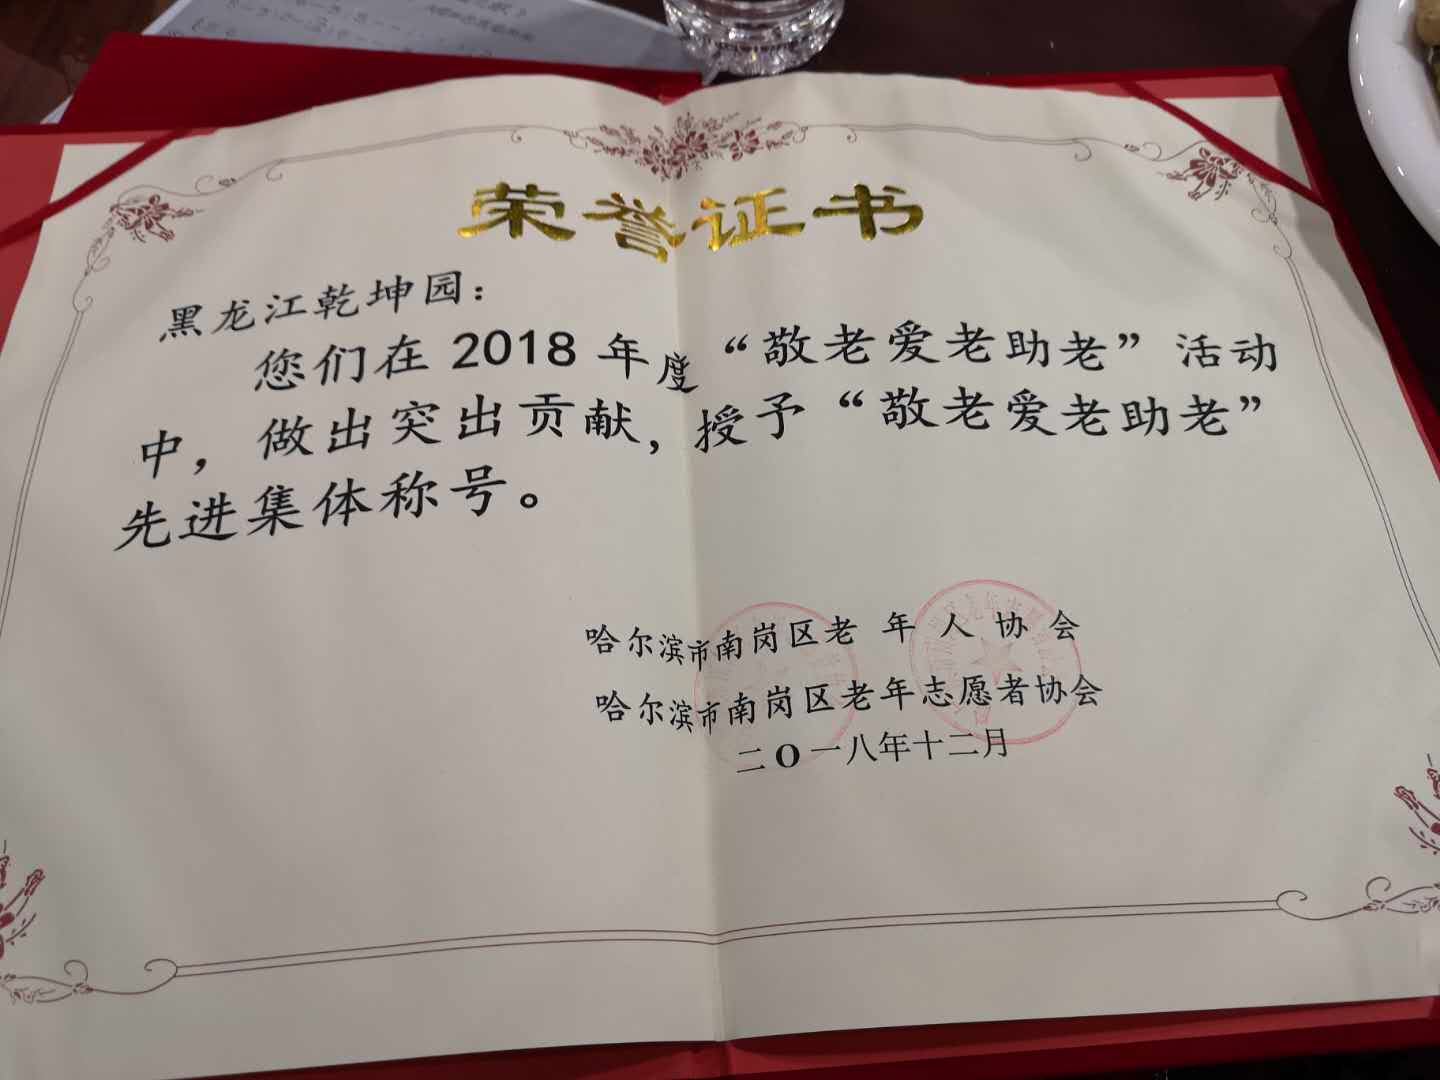 荣誉证书
黑龙江乾坤园：
您们在 2018 年度“敬老爱老助老”活动
中，做出突出贡献，授予“敬老爱老助老”
先进集体称号。
哈尔滨市南岗区老年人协会
哈尔滨市南岗区老年志愿者协会
二O一八年十二月